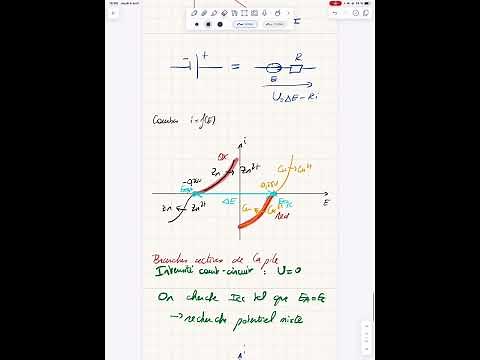 I
- +
=
R
E
U = ΔE - Ri
Courbes i = f(E)
i
Ox
-0,76V
Zn → Zn²⁺
Cu → Cu²⁺
0,34V
Zn ← Zn²⁺
ΔE
Cu ← Cu²⁺
E
Red
Branches actives de la pile
Intensité court-circuit : U=0
On cherche Icc tel que Ea=Ec
→ recherche potentiel mixte
i